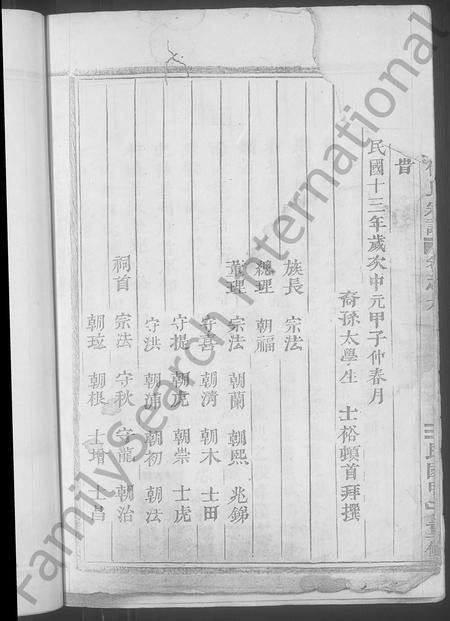 昔
民國十三年歲次中元甲子仲春月
裔孫太學生 士裕頓首拜撰
族長 宗法
總理 朝福
董理 宗法 朝蘭 朝熙 兆錦
守喜 朝濟 朝木 士田
守提 朝虎 朝崇 士虎
守洪 朝浦 朝初 朝法
祠首 宗法 守秋 守龍 朝治
朝㺹 朝根 士增 士昌
FamilySearch International